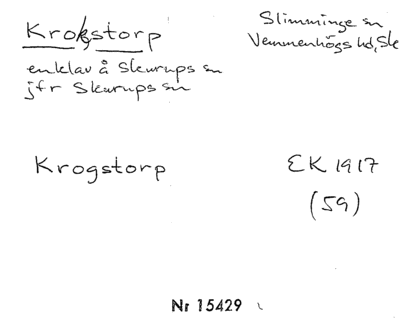 Krokstorp
Slimminge sn
Vemmenhögs hd, Sk
enklav å Skurups sn
jfr Skurups sn
Krogstorp
EK 1917
(59)
Nr 15429